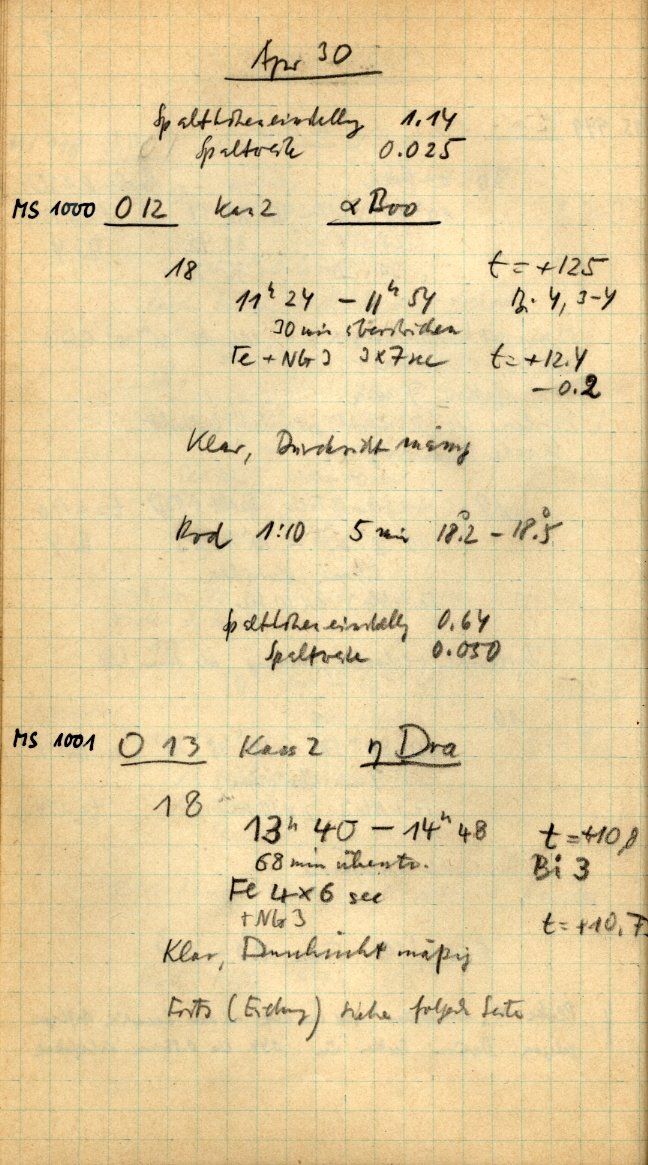 Apr 30
Spalthöheneinstellg 1.14
Spaltweite 0.025
MS 1000 O 12 Kas 2 α Boo
18 t = +12.5
11ʰ 24 – 11ʰ 54 Bi 4, 3-4
30 min überstrichen
Fe + Nb 3 3x7 sec t = +12.4
– 0.2
Klar, Durchsicht mässig
Rod 1:10 5 min 18°.2 – 18°.5
Spalthöheneinstellg 0.64
Spaltweite 0.050
MS 1001 O 13 Kass 2 η Dra
18
13ʰ 40 – 14ʰ 48 t = +10,8
68 min überstr. Bi 3
Fe 4x6 sec
+ Nb 3 t = +10,7
Klar, Durchsicht mäßig
Forts (Eichung) siehe folgende Seite